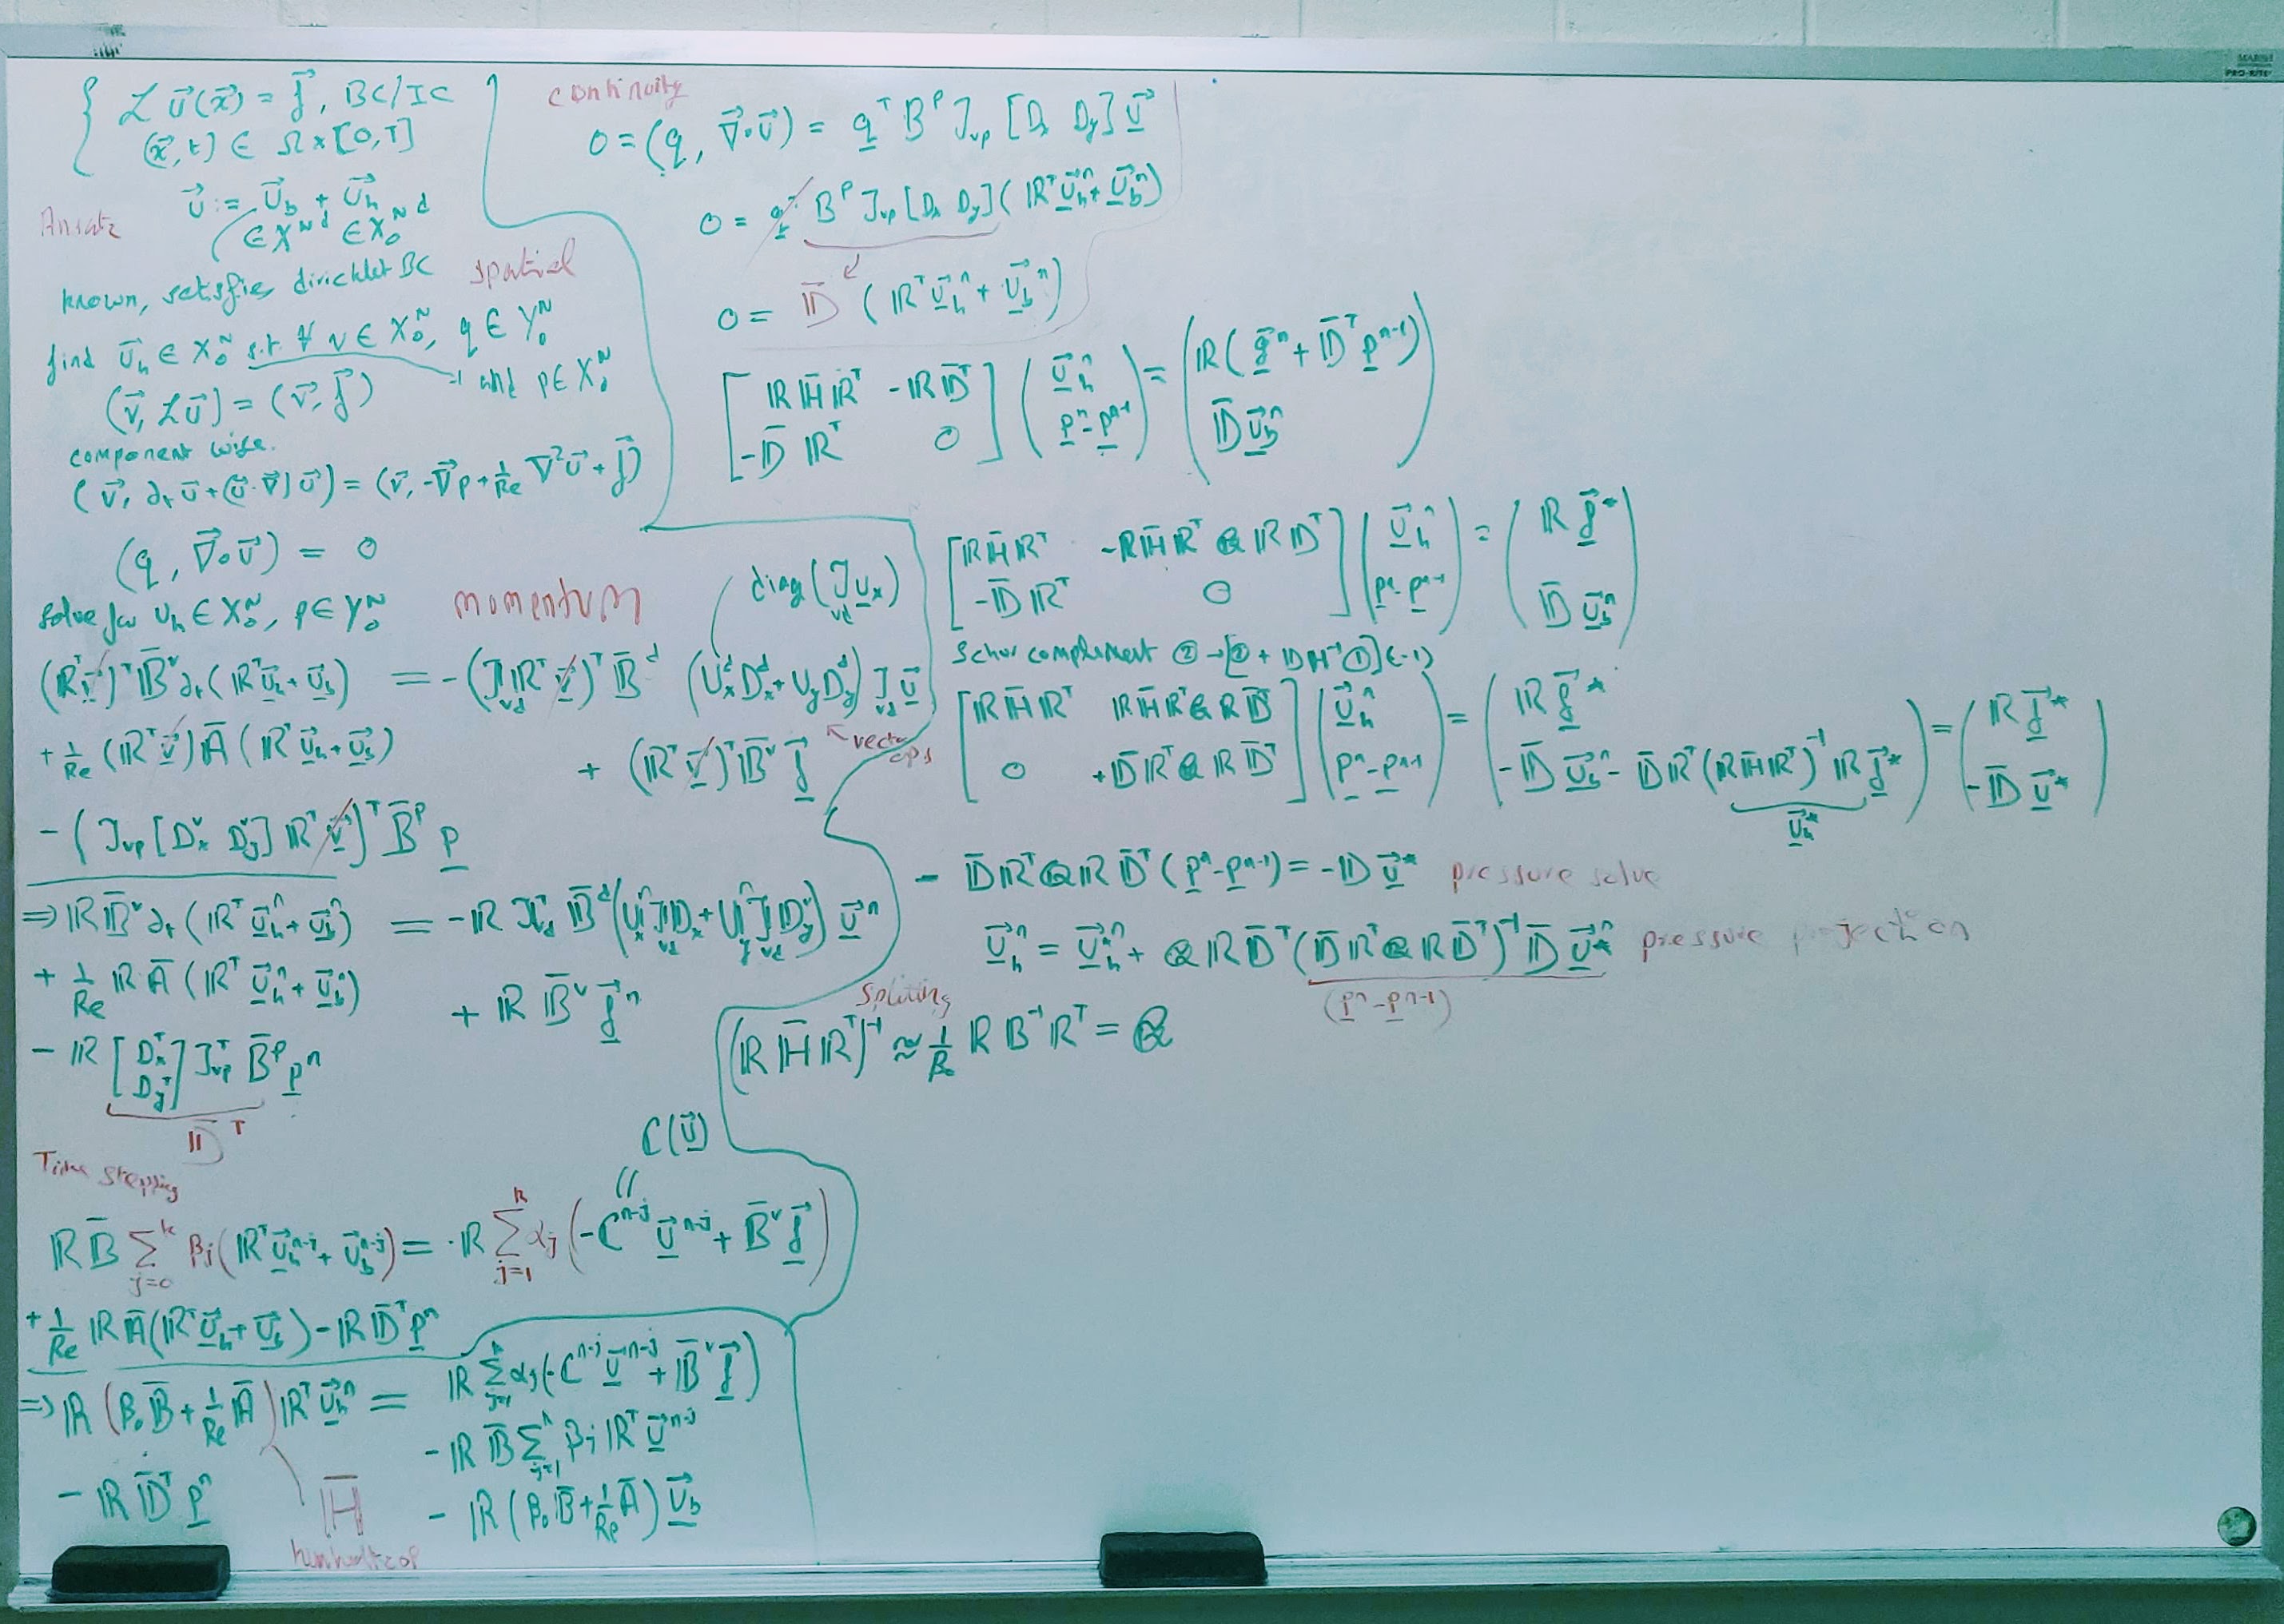 { ℒ u⃗(x⃗) = f⃗, BC/IC
(x⃗, t) ∈ Ω × [0,T]
Ansatz
u⃗ := u⃗_b + u⃗_h
∈ X^{N d} ∈ X_0^{N d}
known, satisfies dirichlet BC
spatial
find u⃗_h ∈ X_0^N s.t. ∀ v ∈ X_0^N, q ∈ Y_0^N
and p ∈ X_0^N
(v⃗, ℒu⃗) = (v⃗, f⃗)
component wise.
(v⃗, ∂_t u⃗ + (u⃗·∇) u⃗) = (v⃗, -∇⃗p + 1/Re ∇²u⃗ + f⃗)
(q, ∇⃗∘u⃗) = 0
solve for u_h ∈ X_0^N, p ∈ Y_0^N
momentum
diag(J_vd u_x)
(R^T v⃗)^T B̄^v ∂_t (R^T u⃗_h + u⃗_b) = -(J_vd R^T v⃗)^T B̄^d (U_x^d D_x^d + U_y D_y^d) J_vd u⃗
+ 1/Re (R^T v⃗) Ā (R^T u⃗_h + u⃗_b) + (R^T v⃗)^T B̄^v f⃗
- (J_vp [D_x^v D_y^v] R^T v⃗)^T B̄^p p
⇒ R B̄^v ∂_t (R^T u⃗_h^n + u⃗_b^n) = -R J_vd^T B̄^d (U_x^n J_vd D_x + U_y^n J_vd D_y) u⃗^n
+ 1/Re R Ā (R^T u⃗_h^n + u⃗_b^n) + R B̄^v f⃗^n
- R [D_x^T D_y^T] J_vp^T B̄^p p^n
D̄^T
Time stepping
C(u⃗)
R B̄ Σ_{j=0}^k β_j (R^T u⃗_h^{n-j} + u⃗_b^{n-j}) = R Σ_{j=1}^k α_j (-C^{n-j} u⃗^{n-j} + B̄^v f⃗)
+ 1/Re R Ā (R^T u⃗_h + u⃗_b) - R D̄^T p^n
⇒ R (β_0 B̄ + 1/Re Ā) R^T u⃗_h^n = R Σ_{j=1}^k α_j (-C^{n-j} u⃗^{n-j} + B̄^v f⃗)
- R B̄ Σ_{j=1}^k β_j R^T u⃗^{n-j}
- R D̄^T p^n - R (β_0 B̄ + 1/Re Ā) u⃗_b
H̄
continuity
0 = (q, ∇⃗∘u⃗) = q^T B^p J_vp [D_x D_y] u⃗
0 = q^T B^p J_vp [D_x D_y] (R^T u⃗_h^n + u⃗_b^n)
0 = D̄ (R^T u⃗_h^n + u⃗_b^n)
[ R H̄ R^T -R D̄^T ] ( u⃗_h^n ) = ( R (f⃗^n + D̄^T p^{n-1}) )
[ -D̄ R^T 0 ] ( p^n - p^{n-1} ) ( D̄ u⃗_b^n )
[ R H̄ R^T -R H̄ R^T Q R D̄^T ] ( u⃗_h^n ) = ( R f⃗^* )
[ -D̄ R^T 0 ] ( p^n - p^{n-1} ) ( D̄ u⃗_b^n )
Schur complement ② → [② + D H^{-1} ①](-1)
[ R H̄ R^T R H̄ R^T Q R D̄^T ] ( u⃗_h^n ) = ( R f⃗^* ) = ( R f⃗^* )
[ 0 +D̄ R^T Q R D̄^T ] ( p^n - p^{n-1} ) ( -D̄ u⃗_b^n - D̄ R^T (R H̄ R^T)^{-1} R f⃗^* ) ( -D̄ u⃗^* )
u⃗_h^*
- D̄ R^T Q R D̄^T (p^n - p^{n-1}) = -D u⃗^* pressure solve
u⃗_h^n = u⃗_h^{*n} + Q R D̄^T (D̄ R^T Q R D̄^T)^{-1} D̄ u⃗^* pressure projection
(p^n - p^{n-1})
Splitting
(R H̄ R^T)^{-1} ≈ 1/β_0 R B^{-1} R^T = Q